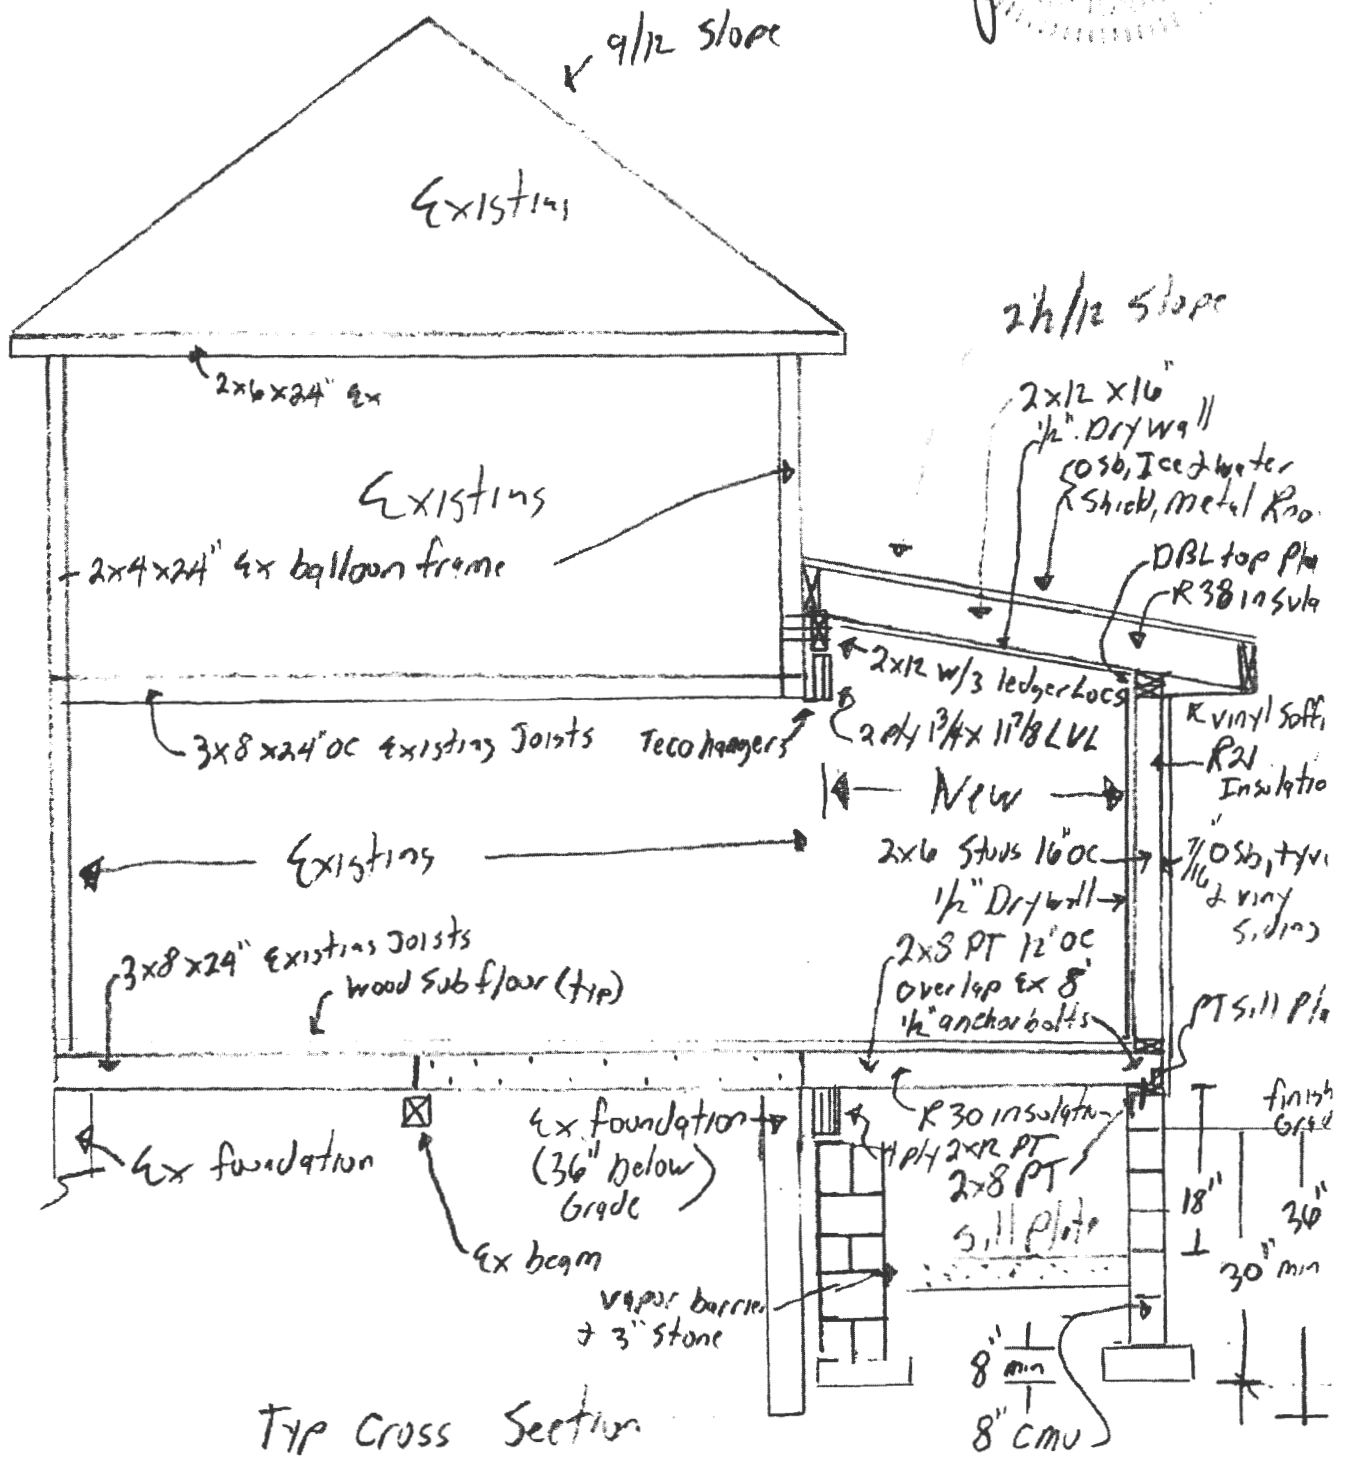 9/12 Slope
Existing
2½/12 Slope
2x6x24" Ex
2x12 x16"
½" Drywall
OSb, Ice & water
Shield, metal Roo
Existing
DBL top Pla
2x4x24" Ex balloon frame
R38 insula
2x12 w/3 ledgerLocs
3x8x24"OC Existing Joists
Teco hangers
2 ply 1¾ x 11⅞ LVL
vinyl Soffi
R21
Insulatio
New
Existing
2x6 Studs 16"OC
7/16" OSb, tyv
& vinyl
Siding
½" Drywall
3x8x24" Existing Joists
wood Subfloor (typ)
2x8 PT 12"OC
overlap Ex 8'
½" anchorbolts
PT Sill Pla
finish
Grade
Ex foundation
Ex foundation
(36" below
Grade)
R30 insulation
4 ply 2x12 PT
2x8 PT
Sill Plate
18"
36"
30" min
Ex beam
vapor barrier
+ 3" Stone
8" min
8" CMU
Typ Cross Section